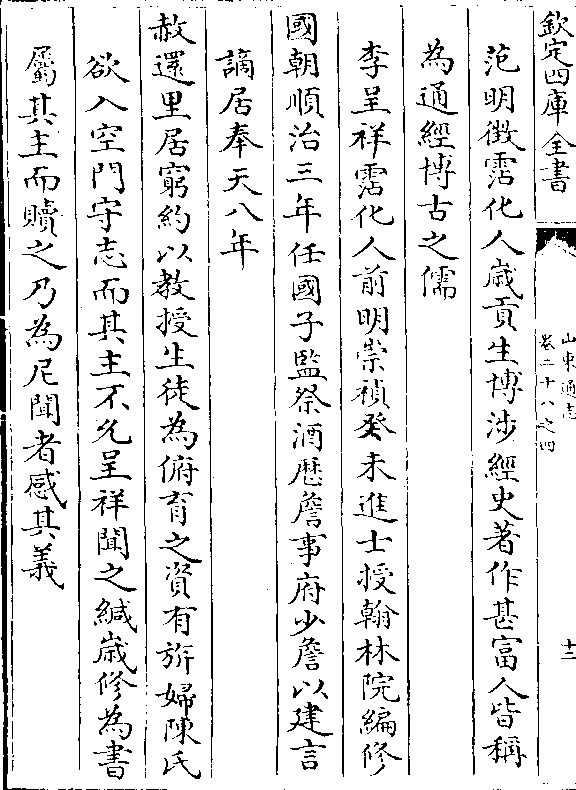 欽定四庫全書
山東通志
卷二十八之四
十二
范明徴霑化人歲貢生博涉經史著作甚富人皆稱
為通經博古之儒
李呈祥霑化人前明崇禎癸未進士授翰林院編修
國朝順治三年任國子監祭酒歴詹事府少詹以建言
謫居奉天八年
赦還里居窮約以教授生徒為俯育之資有旂婦陳氏
欲入空門守志而其主不允呈祥聞之緘歲修為書
屬其主而贖之乃為尼聞者感其義